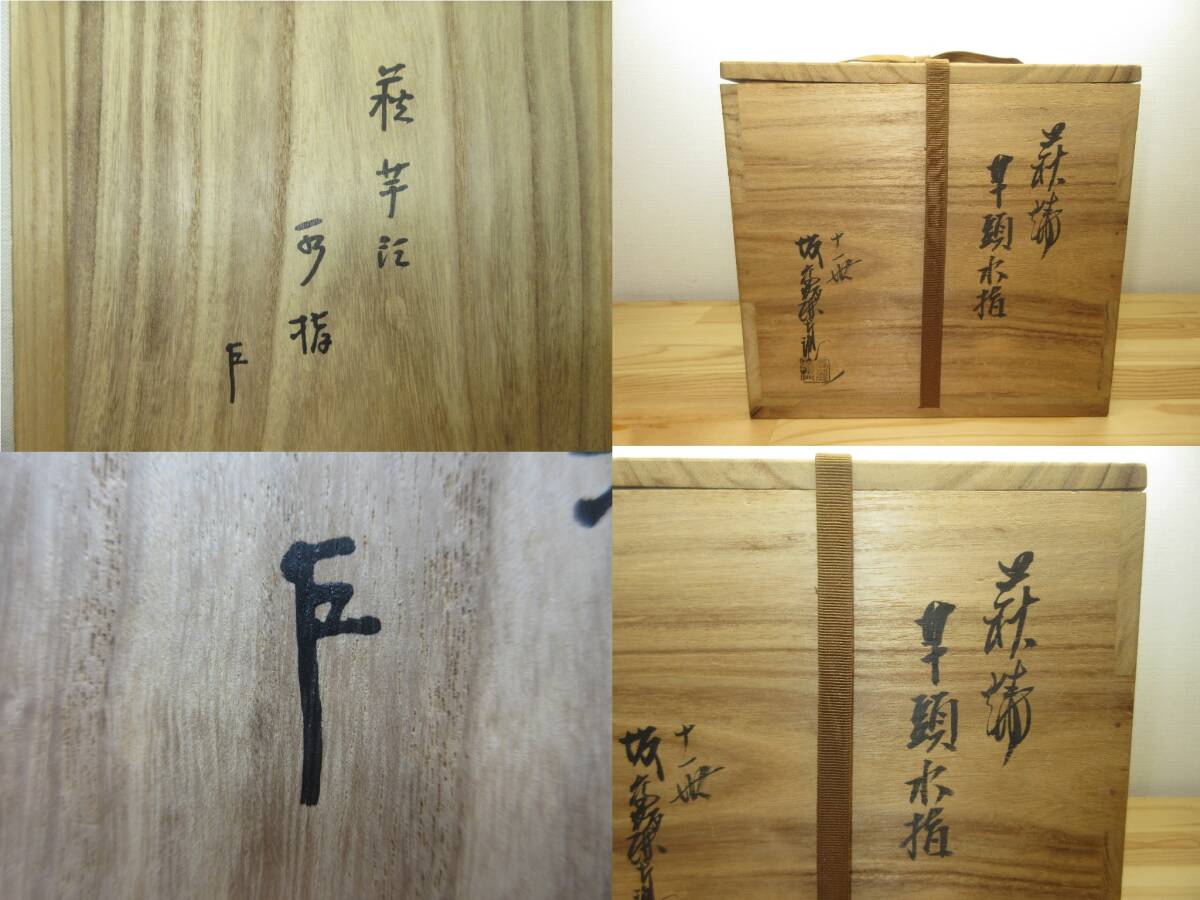 萩 芋頭
水指
萩焼
芋頭水指
十一世
坂高麗左衛門
萩焼
芋頭水指
十一世
坂高麗左